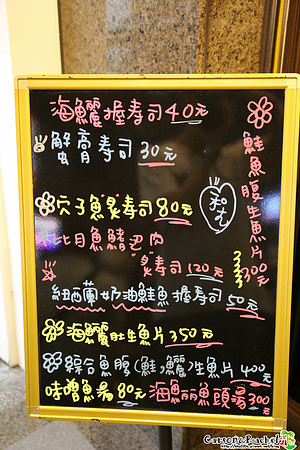 海鱺握壽司40元
蟹膏壽司30元
穴子魚炙壽司80元
比目魚鰭邊肉
炙壽司120元
紐西蘭奶油鮭魚握壽司50元
海鱺肚生魚片350元
綜合魚腹(鮭,鱺)生魚片400元
味噌魚湯80元
海魚頭湯300元
鮭魚腹生魚片
300元